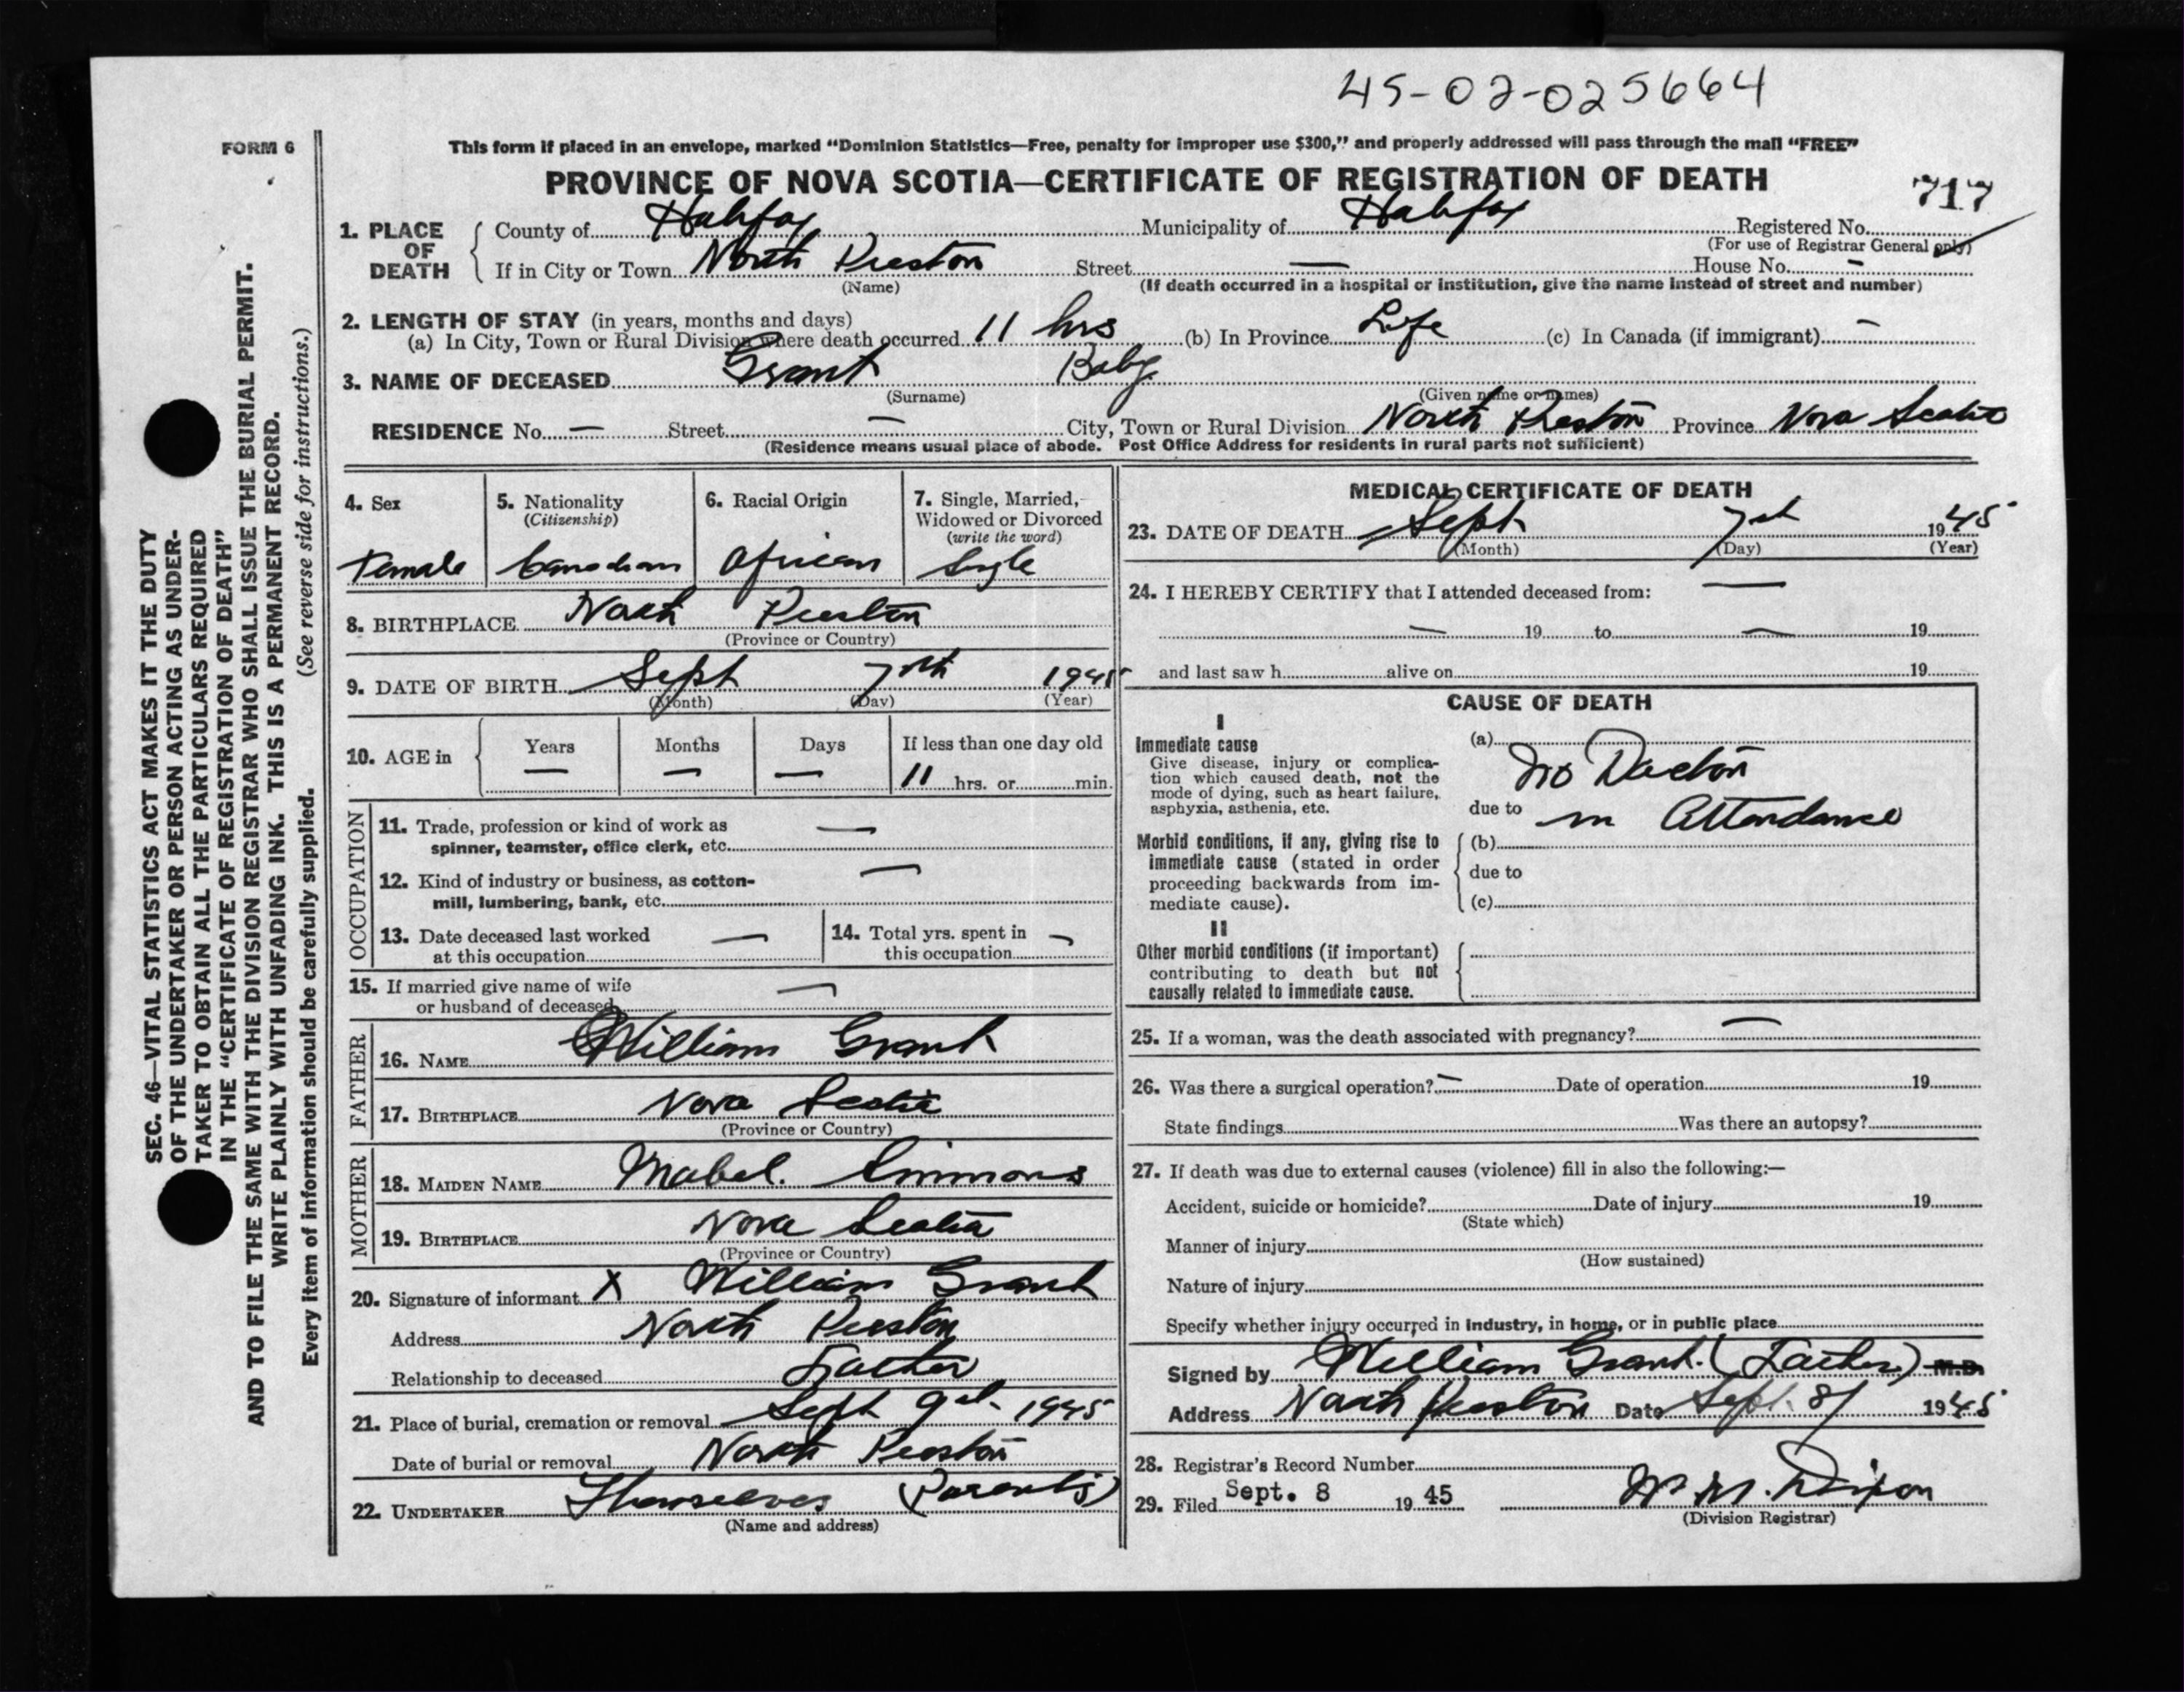 45-02-025664
FORM 6
This form if placed in an envelope, marked "Dominion Statistics—Free, penalty for improper use $300," and properly addressed will pass through the mail "FREE"
PROVINCE OF NOVA SCOTIA—CERTIFICATE OF REGISTRATION OF DEATH
717
1. PLACE OF DEATH
County of Halifax Municipality of Halifax Registered No.
(For use of Registrar General only)
If in City or Town North Preston Street — House No. -
(Name)
(If death occurred in a hospital or institution, give the name instead of street and number)
2. LENGTH OF STAY (in years, months and days)
(a) In City, Town or Rural Division where death occurred 11 hrs (b) In Province Life (c) In Canada (if immigrant) —
3. NAME OF DECEASED Grant Baby
(Surname) (Given name or names)
RESIDENCE No. — Street — City, Town or Rural Division North Preston Province Nova Scotia
(Residence means usual place of abode. Post Office Address for residents in rural parts not sufficient)
4. Sex
Female
5. Nationality
(Citizenship)
Canadian
6. Racial Origin
African
7. Single, Married,
Widowed or Divorced
(write the word)
Single
8. BIRTHPLACE North Preston
(Province or Country)
9. DATE OF BIRTH Sept 7th 1945
(Month) (Day) (Year)
10. AGE in
Years Months Days If less than one day old
— — — 11 hrs. or min.
OCCUPATION
11. Trade, profession or kind of work as —
spinner, teamster, office clerk, etc.
12. Kind of industry or business, as cotton- —
mill, lumbering, bank, etc.
13. Date deceased last worked —
at this occupation
14. Total yrs. spent in —
this occupation
15. If married give name of wife —
or husband of deceased
FATHER
16. NAME William Grant
17. BIRTHPLACE Nova Scotia
(Province or Country)
MOTHER
18. MAIDEN NAME Mabel. Simmons
19. BIRTHPLACE Nova Scotia
(Province or Country)
20. Signature of informant X William Grant
Address North Preston
Relationship to deceased Father
21. Place of burial, cremation or removal Sept 9th 1945
Date of burial or removal North Preston
22. UNDERTAKER Themselves (Parents)
(Name and address)
MEDICAL CERTIFICATE OF DEATH
23. DATE OF DEATH Sept 7th 1945
(Month) (Day) (Year)
24. I HEREBY CERTIFY that I attended deceased from: —
— 19 to — 19
and last saw h alive on 19
CAUSE OF DEATH
I
Immediate cause
Give disease, injury or complica-
tion which caused death, not the
mode of dying, such as heart failure,
asphyxia, asthenia, etc.
(a)
No Doctor
due to in Attendance
Morbid conditions, if any, giving rise to
immediate cause (stated in order
proceeding backwards from im-
mediate cause).
(b)
due to
(c)
II
Other morbid conditions (if important)
contributing to death but not
causally related to immediate cause.
25. If a woman, was the death associated with pregnancy? —
26. Was there a surgical operation? — Date of operation 19
State findings Was there an autopsy?
27. If death was due to external causes (violence) fill in also the following:—
Accident, suicide or homicide? Date of injury 19
(State which)
Manner of injury
(How sustained)
Nature of injury
Specify whether injury occurred in industry, in home, or in public place
Signed by William Grant. (Father) M.D.
Address North Preston Date Sept. 8/ 1945
28. Registrar's Record Number
29. Filed Sept. 8 1945 Dixon
(Division Registrar)
SEC. 46—VITAL STATISTICS ACT MAKES IT THE DUTY
OF THE UNDERTAKER OR PERSON ACTING AS UNDER-
TAKER TO OBTAIN ALL THE PARTICULARS REQUIRED
IN THE "CERTIFICATE OF REGISTRATION OF DEATH"
AND TO FILE THE SAME WITH THE DIVISION REGISTRAR WHO SHALL ISSUE THE BURIAL PERMIT.
WRITE PLAINLY WITH UNFADING INK. THIS IS A PERMANENT RECORD.
Every item of information should be carefully supplied. (See reverse side for instructions.)